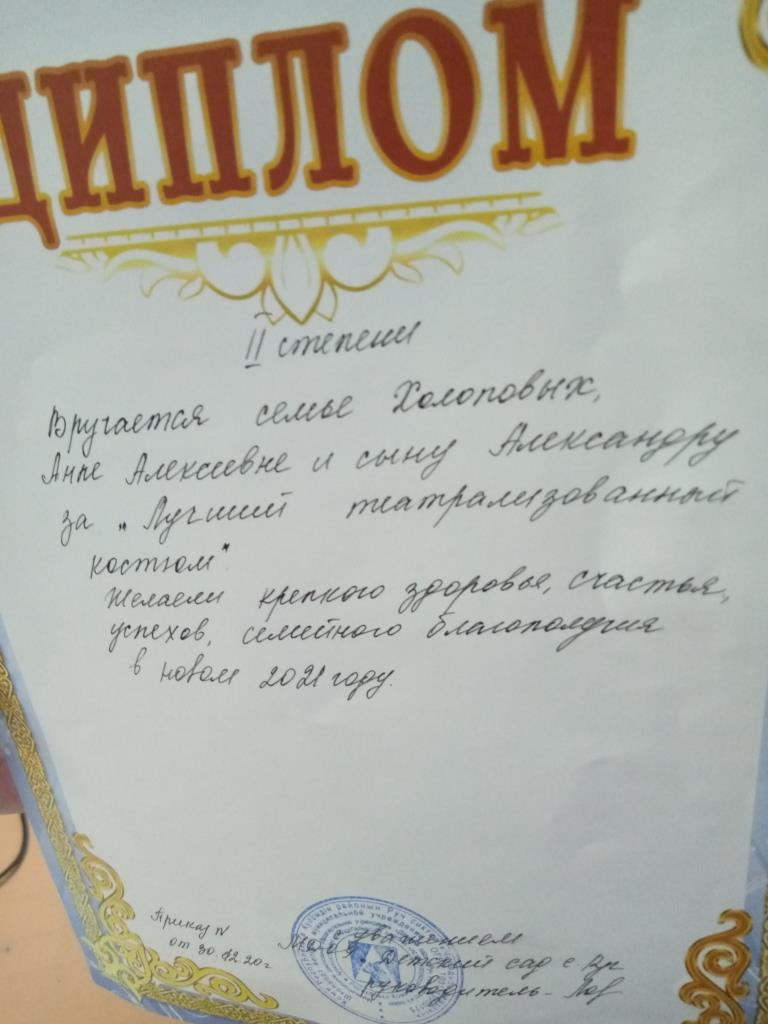 ДИПЛОМ
II степени
Вручается семье Холоповых,
Анне Алексеевне и сыну Александру
за „Лучший театрализованный
костюм"
Желаем крепкого здоровье, счастья,
успехов, семейного благополучия
в новом 2021 году.
Приказ №
от 30.12.20г
с уважением
МДОУ Детский сад с
руководитель-